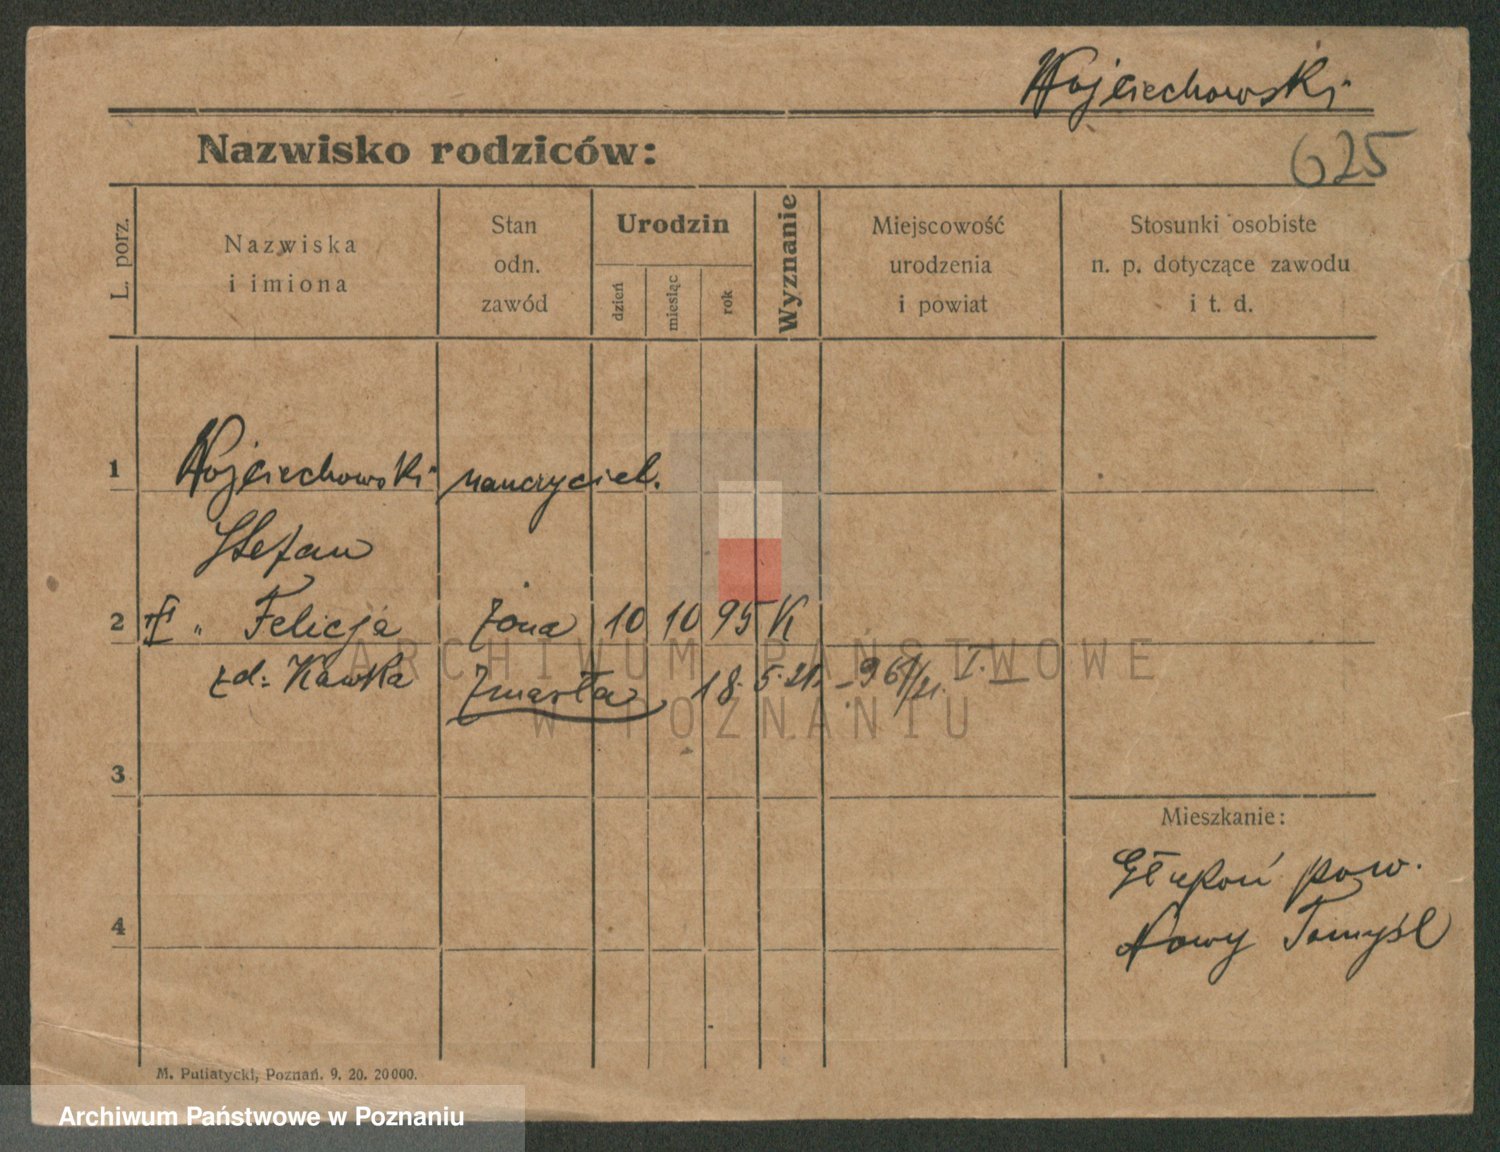 Wojciechowski
Nazwisko rodziców:
625
L. porz.
Nazwiska
i imiona
Stan
odn.
zawód
Urodzin
dzień
miesiąc
rok
Wyznanie
Miejscowość
urodzenia
i powiat
Stosunki osobiste
n. p. dotyczące zawodu
i t. d.
1 Wojciechowski nauczyciel.
Stefan
2 " Felicja żona 10 10 95 K
zd: Kawka Zmarła 18. 5. 21. - 961/21. I.
ARCHIWUM PAŃSTWOWE
W POZNANIU
3
Mieszkanie:
Głupoń pow.
4
Nowy Tomyśl
M. Putiatycki, Poznań. 9. 20. 20000.
Archiwum Państwowe w Poznaniu